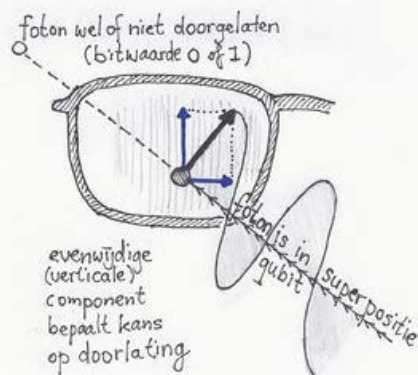 foton wel of niet doorgelaten
(bitwaarde 0 of 1)
evenwijdige
(verticale)
component
bepaalt kans
op doorlating
foton is in superpositie
qubit